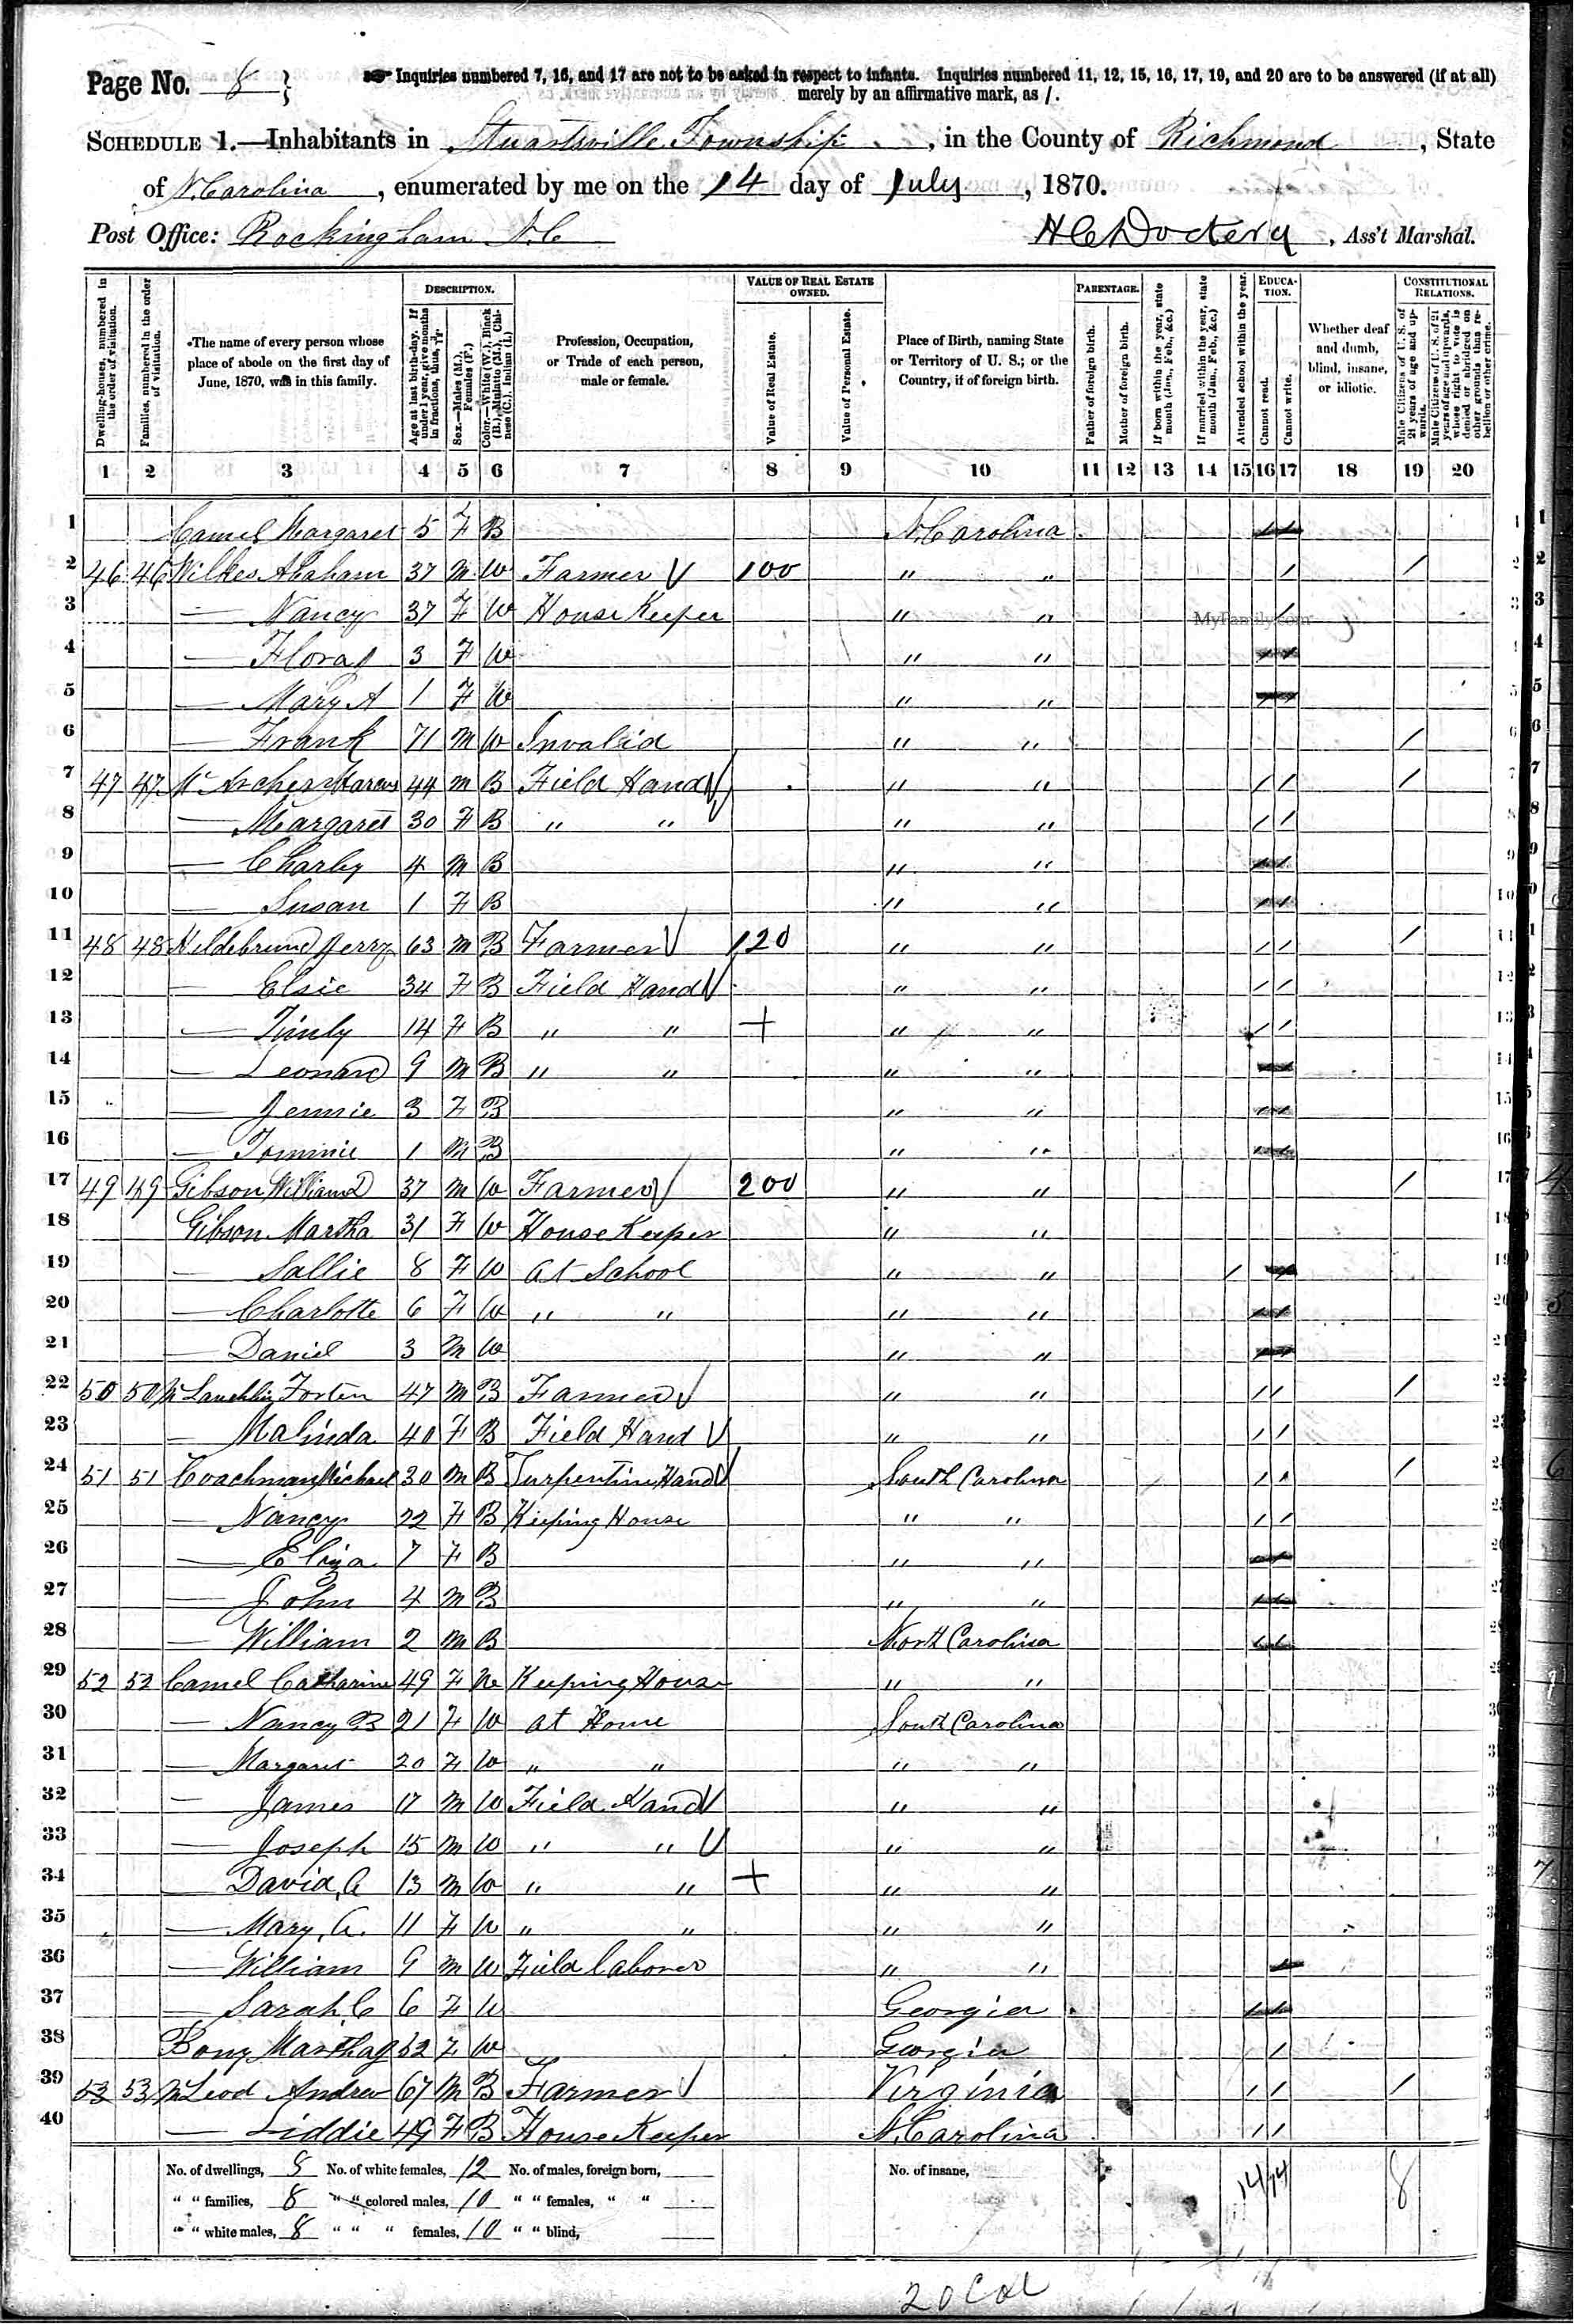 Page No. 8 } Inquiries numbered 7, 16, and 17 are not to be asked in respect to infants. Inquiries numbered 11, 12, 15, 16, 17, 19, and 20 are to be answered (if at all)
merely by an affirmative mark, as /.
SCHEDULE 1.—Inhabitants in Stuartsville Township, in the County of Richmond, State
of N. Carolina, enumerated by me on the 14 day of July, 1870.
Post Office: Rockingham N.C H C Dockery, Ass't Marshal.
Dwelling-houses, numbered in the order of visitation.
Families, numbered in the order of visitation.
The name of every person whose place of abode on the first day of June, 1870, was in this family.
DESCRIPTION.
Age at last birth-day. If under 1 year, give months in fractions, thus, 3/12.
Sex.—Males (M.), Females (F.)
Color.—White (W.), Black (B.), Mulatto (M.), Chinese (C.), Indian (I.)
Profession, Occupation, or Trade of each person, male or female.
VALUE OF REAL ESTATE OWNED.
Value of Real Estate.
Value of Personal Estate.
Place of Birth, naming State or Territory of U. S.; or the Country, if of foreign birth.
PARENTAGE.
Father of foreign birth.
Mother of foreign birth.
If born within the year, state month (Jan., Feb., &c.)
If married within the year, state month (Jan., Feb., &c.)
Attended school within the year.
EDUCATION.
Cannot read.
Cannot write.
Whether deaf and dumb, blind, insane, or idiotic.
CONSTITUTIONAL RELATIONS.
Male Citizens of U. S. of 21 years of age and upwards.
Male Citizens of U. S. of 21 years of age and upwards, whose right to vote is denied or abridged on other grounds than rebellion or other crime.
1 2 3 4 5 6 7 8 9 10 11 12 13 14 15 16 17 18 19 20
1 Camel Margaret 5 F B N. Carolina
2 46 46 Wilkes Abaham 37 M W Farmer √ 100 " " / /
3 — Nancy 37 F W House Keeper " " /
MyFamily.com
4 — Flora 3 F W " "
5 — Mary A 1 F W " "
6 — Frank 71 M W Invalid " " /
7 47 47 Marcus 44 M B Field Hand √ " " / / /
8 — Margaret 30 F B " " " " / /
9 — Charley 4 M B " "
10 — Susan 1 F B " "
11 48 48 Hildebrund Jerry 63 M B Farmer √ 120 " " / / /
12 — Elsie 34 F B Field Hand √ " " / /
13 — 14 F B " " + " " / /
14 — Leonard 9 M B " " " "
15 — Jennie 3 F B " "
16 — Tommie 1 M B " "
17 49 49 Gibson William D 37 M W Farmer √ 200 " " /
18 Gibson Martha 31 F W House Keeper " "
19 — Sallie 8 F W At School " " /
20 — Charlotte 6 F W " " " "
21 — Daniel 3 M W " "
22 50 50 McLauchlin Forten 47 M B Farmer √ " " / / /
23 — Malinda 40 F B Field Hand √ " " / /
24 51 51 Coachman Michael 30 M B Turpentine Hand √ South Carolina / / /
25 — Nancy 22 F B Keeping House " " / /
26 — Eliza 7 F B " "
27 — John 4 M B " "
28 — William 2 M B North Carolina
29 52 52 Camel Catharine 49 F W Keeping House " "
30 — Nancy B 21 F W at Home South Carolina
31 — Margaret 20 F W " " " "
32 — James 17 M W Field Hand √ " "
33 — Joseph 15 M W " " √ " "
34 — David, A 13 M W " " + " "
35 — Mary, A. 11 F W " " " "
36 — William 9 M W Field Laborer " "
37 — Sarah, C 6 F W Georgia
38 Martha 52 F W Georgia /
39 53 53 McLeod Andrew 67 M B Farmer √ Virginia / / /
40 — Liddie 49 F B House Keeper N. Carolina / /
No. of dwellings, 8 No. of white females, 12 No. of males, foreign born, No. of insane, 14/14 8
" " families, 8 " " colored males, 10 " " females, " "
" " white males, 8 " " " females, 10 " " blind,
20 Col